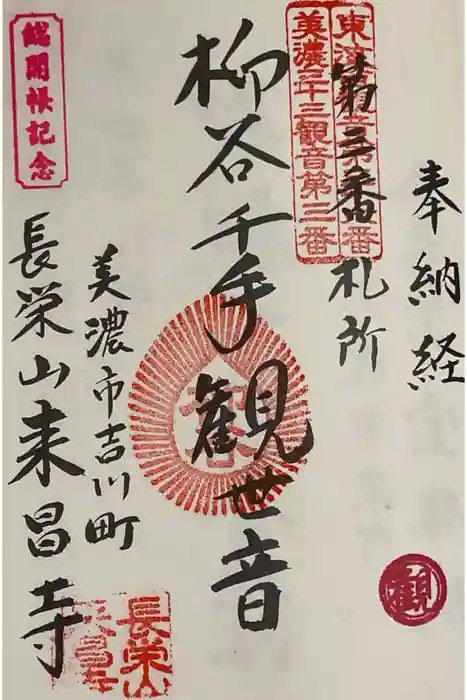 奉納経
東海観音第三番
美濃三十三観音第三番
第三番
札所
柳谷千手観世音
観
総開帳記念
美濃市吉川町
長栄山来昌寺
長栄山
来昌寺